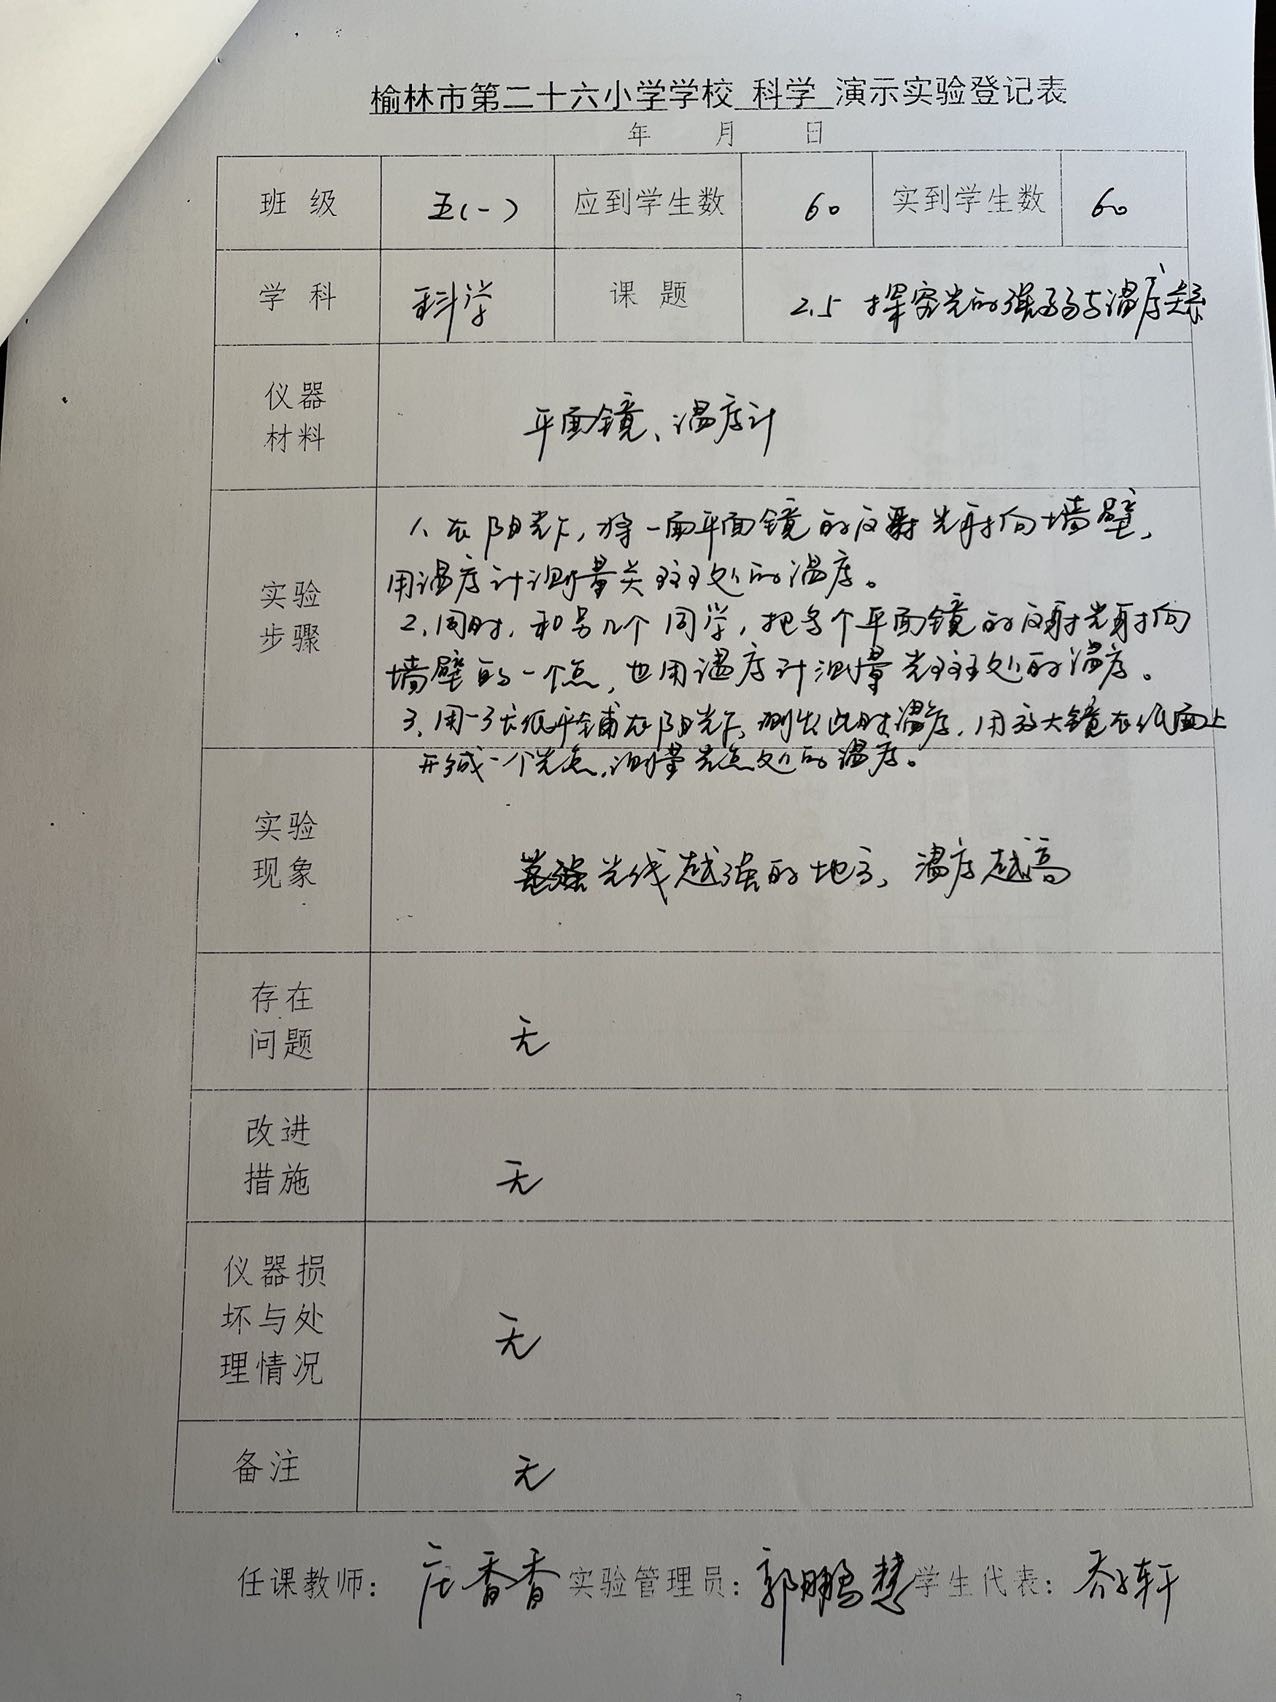 榆林市第二十六小学学校 科学 演示实验登记表
年 月 日
班 级 五(一) 应到学生数 60 实到学生数 60
学 科 科学 课 题 2.5 探究光的强弱与温度关系
仪器
材料
平面镜、温度计
实验
步骤
1、在阳光下,将一面平面镜的反射光射向墙壁,
用温度计测量光斑处的温度。
2、同时,和另几个同学,把多个平面镜的反射光射向
墙壁的一个点,也用温度计测量光斑处的温度。
3、用一张纸平铺在阳光下,测出此时温度,用放大镜在纸面上
形成一个光点,测量光点处的温度。
实验
现象
光线越强的地方,温度越高
存在
问题
无
改进
措施
无
仪器损
坏与处
理情况
无
备注 无
任课教师: 庄香香 实验管理员: 郭鹏慧 学生代表: